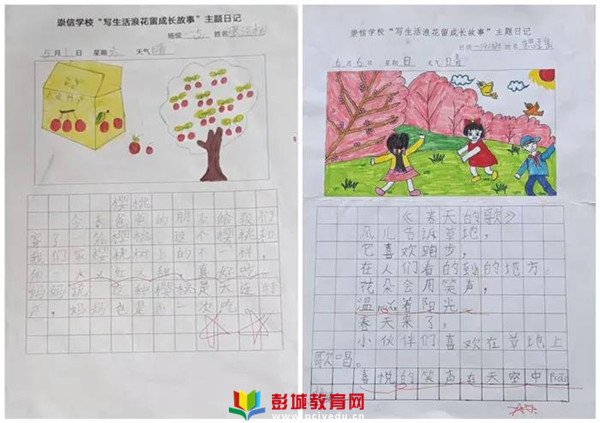 崇信学校“写生活浪花留成长故事”主题日记
班级 一 姓名
5月1日 星期六 天气 晴
樱桃
今天爸爸的朋友给我们
寄了一箱樱桃，这个樱桃和
我们家樱桃树上的不一样，
的，又大又甜，真好吃
妈妈说，这种樱桃是大连的
，妈妈也是第一次吃
崇信学校“写生活浪花留成长故事”主题日记
班级 姓名
6月6日 星期日 天气 晴
《春天的歌》
风儿告诉草地，
它喜欢跑步，
在人们看的到的地方，
花朵会用笑声，
温nuǎn着阳光
春天来了，
小伙伴们喜欢在草地上
歌唱。
喜悦的笑声在天空中
彭城教育网
www.pcjyedu.cn